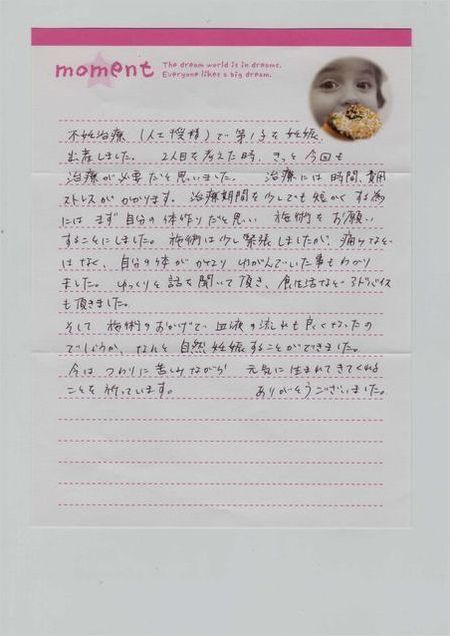 moment
The dream world is in dreams.
Everyone likes a big dream.
不妊治療（人工授精）で第1子を妊娠
出産しました。 2人目を考えた時、きっと今回も
治療が必要だと思いました。 治療には時間、費用
ストレスがかかります。治療期間を少しでも短かくする為
にはまず自分の体作りだと思い 施術をお願い
することにしました。施術は少し緊張しましたが、痛みなどは
はなく、自分の体がかなりゆがんでいた事もわかり
ました。ゆっくりと話を聞いて頂き、食生活などアドバイス
も頂きました。
そして 施術のおかげで、血液の流れも良くなったの
でしょうか、なんと自然妊娠することができました。
今は つわりに苦しみながら 元気に生まれてきてくれる
ことを祈っています。 ありがとうございました。